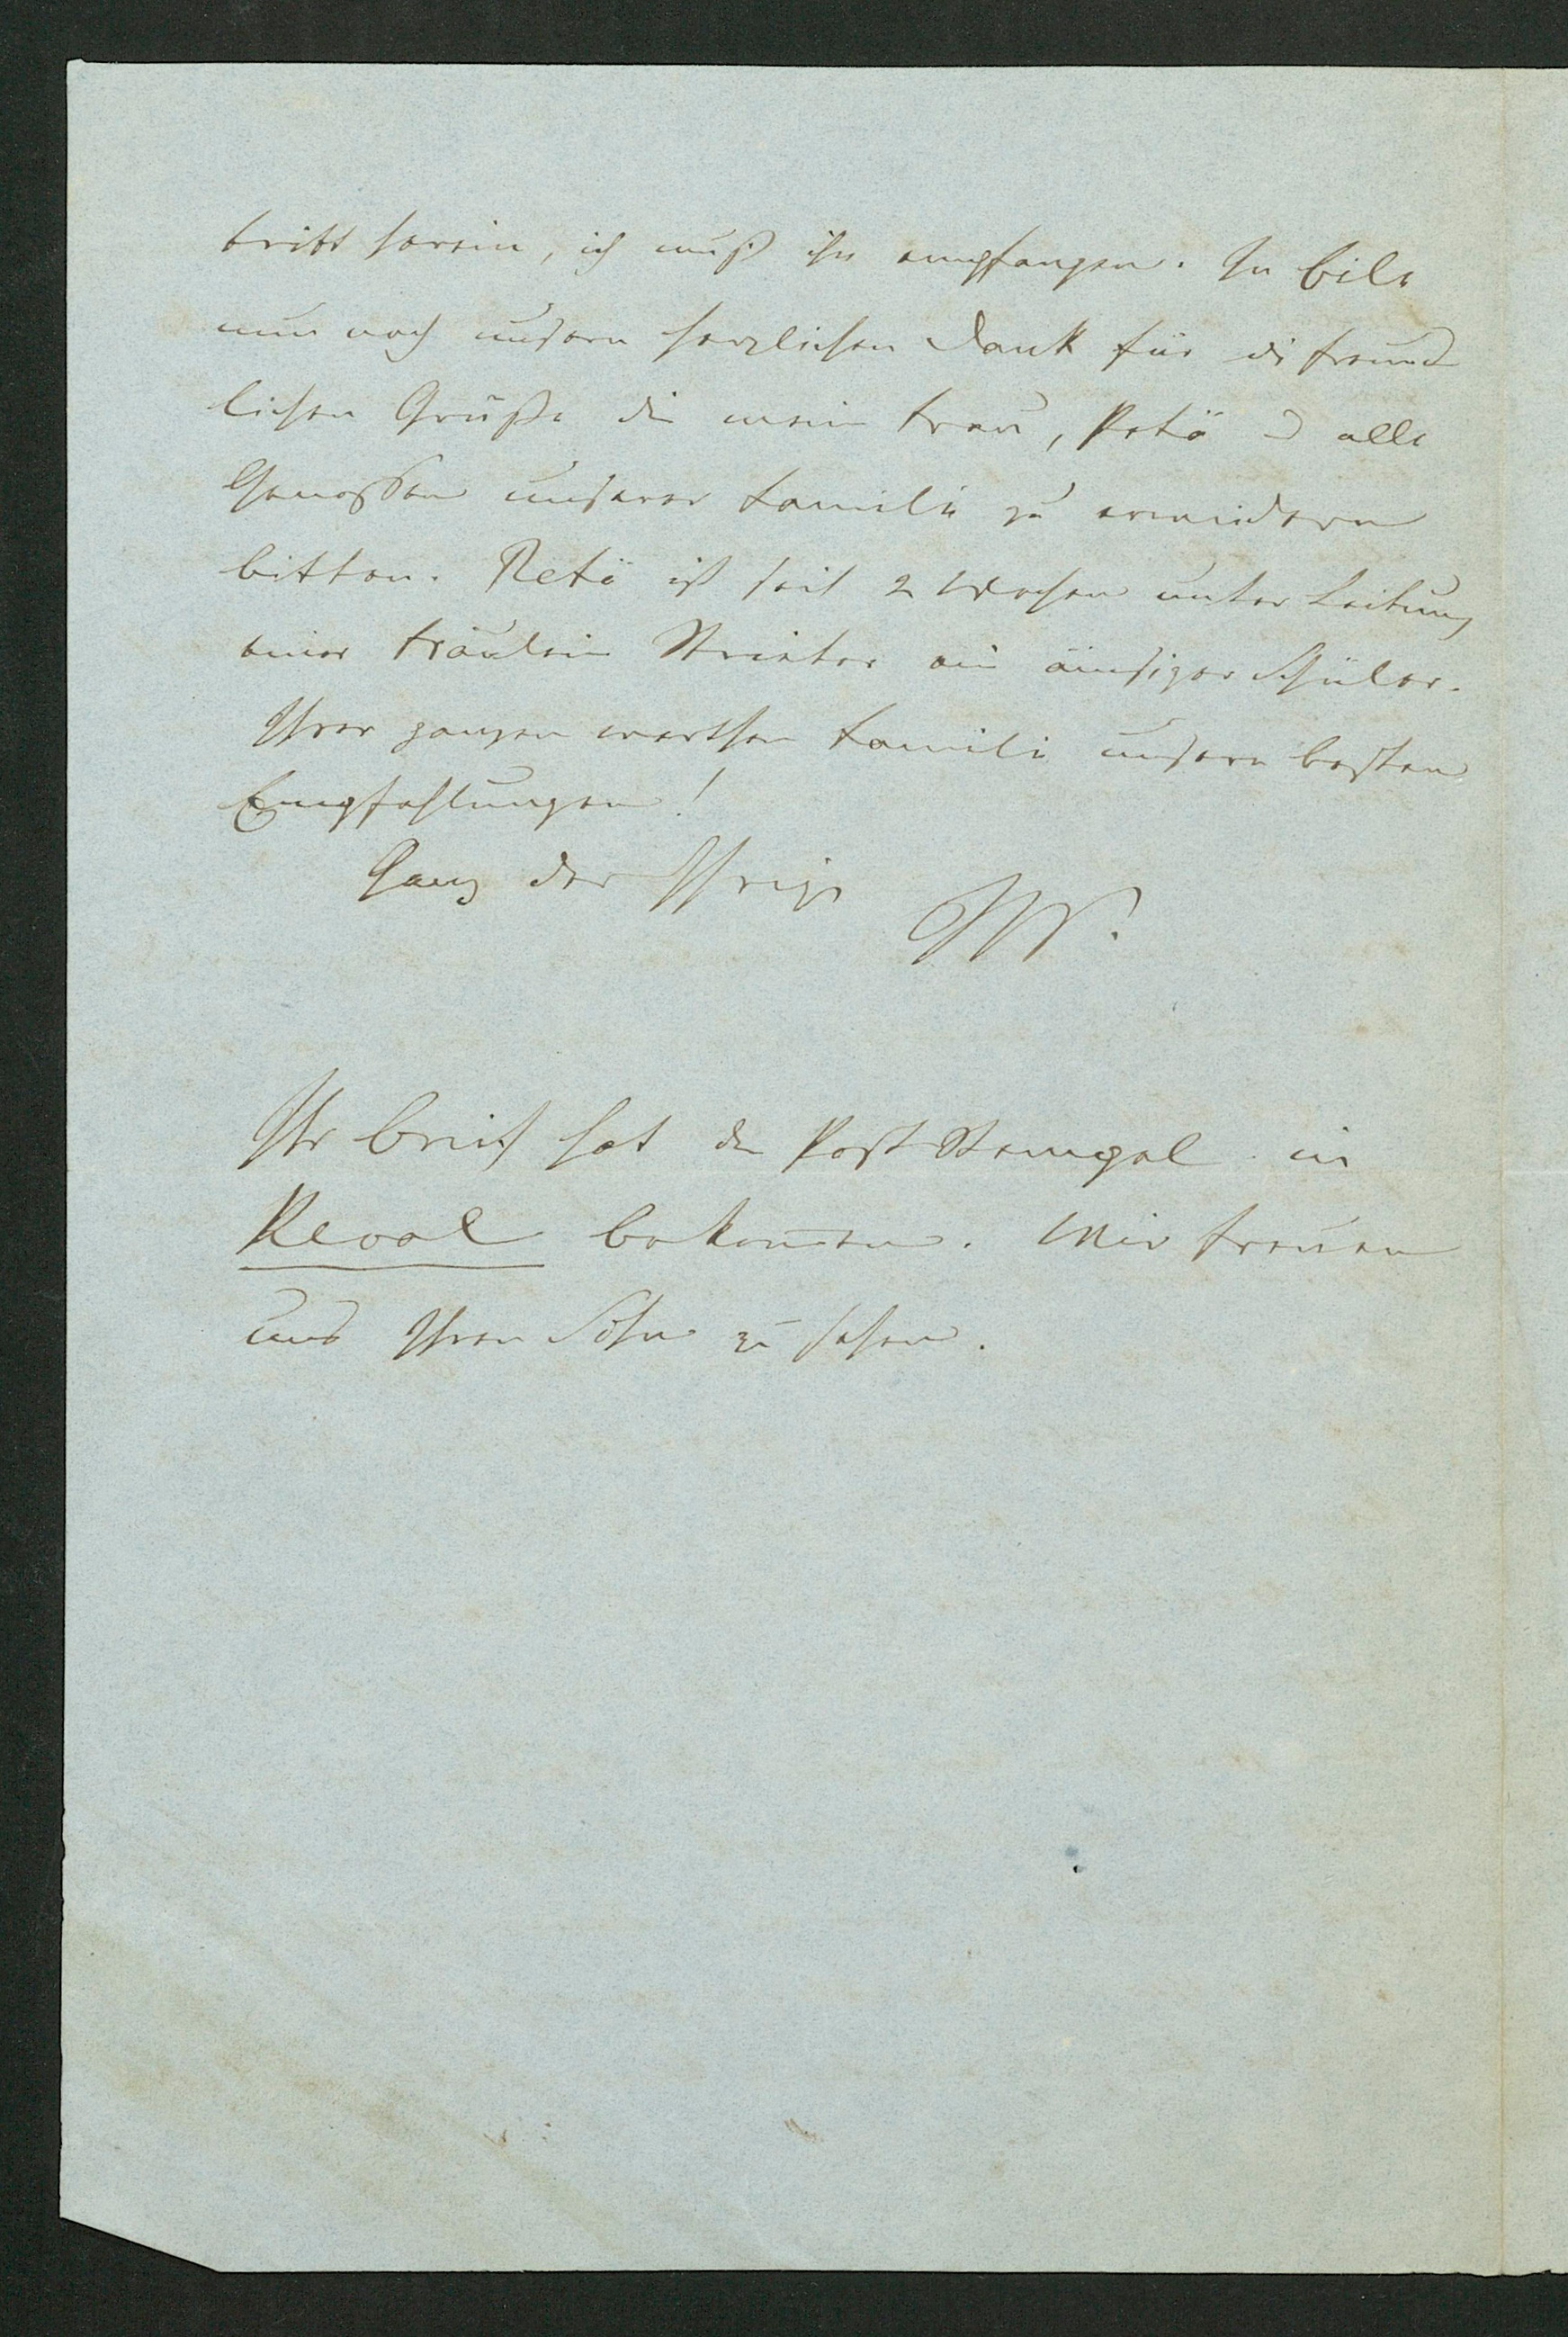 tritt herein, ich muß ihn empfangen. In Eile
nun noch unsern herzlichen Dank für die freund
lichen Grüße die meine Frau, Petö u alle
Genossen unserer Familie zu erwiedern
bitten. Petö ist seit 2 Wochen unter Leitung
einer Fräulein Streeter ein ämsiger Schüler.
Ihrer ganzen werthen Familie unsern besten
Empfehlungen!
Ganz der Ihrige
Ihr Brief hat den Post Stempel in
Reval bekommen. Wir freuen
uns Ihren Sohn zu sehen.